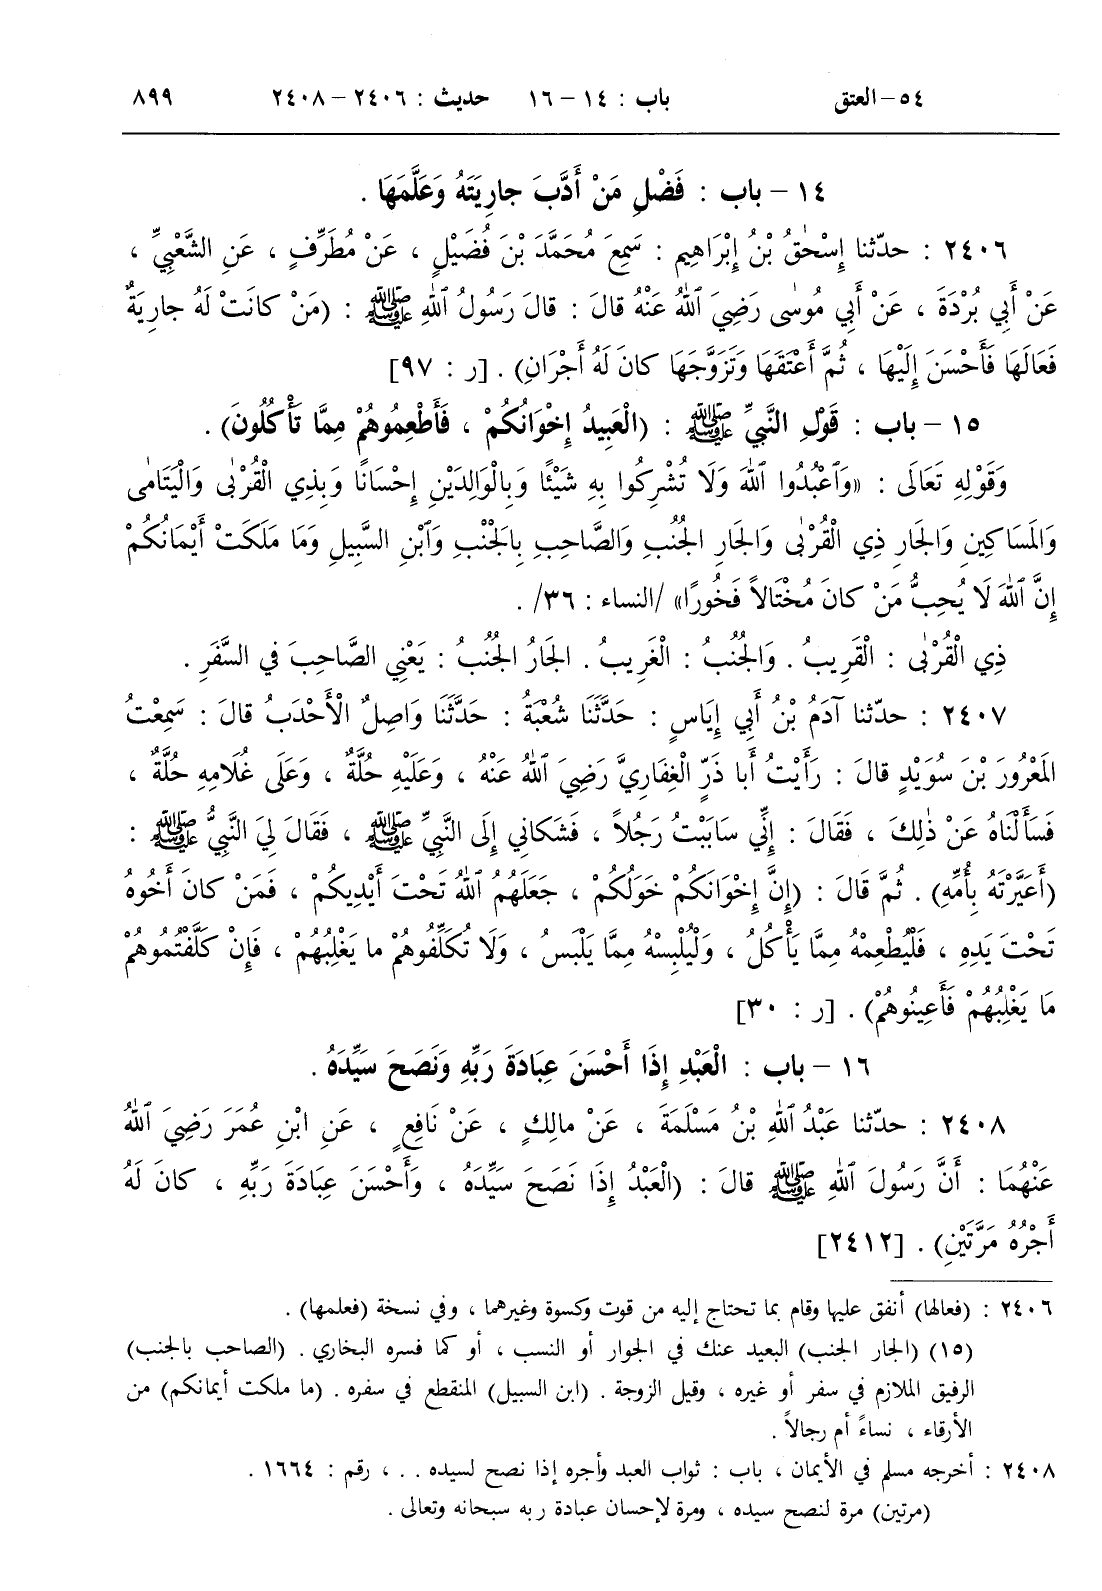 ٥٤ – العتق باب : ١٤ – ١٦ حديث : ٢٤٠٦ – ٢٤٠٨ ٨٩٩
١٤ – باب : فَضْلِ مَنْ أَدَّبَ جارِيَتَهُ وَعَلَّمَهَا .
٢٤٠٦ : حدّثنا إِسْحٰقُ بْنُ إِبْرَاهِيمَ : سَمِعَ مُحَمَّدَ بْنَ فُضَيْلٍ ، عَنْ مُطَرِّفٍ ، عَنِ الشَّعْبِيِّ ،
عَنْ أَبِي بُرْدَةَ ، عَنْ أَبِي مُوسٰى رَضِيَ ٱللهُ عَنْهُ قالَ : قالَ رَسُولُ ٱللهِ ﷺ : (مَنْ كانَتْ لَهُ جارِيَةٌ
فَعَالَهَا فَأَحْسَنَ إِلَيْهَا ، ثُمَّ أَعْتَقَهَا وَتَزَوَّجَهَا كانَ لَهُ أَجْرَانِ) . [ر : ٩٧]
١٥ – باب : قَوْلِ النَّبِيِّ ﷺ : (الْعَبِيدُ إِخْوَانُكُمْ ، فَأَطْعِمُوهُمْ مِمَّا تَأْكُلُونَ) .
وَقَوْلِهِ تَعَالَى : «وَٱعْبُدُوا ٱللهَ وَلَا تُشْرِكُوا بِهِ شَيْئًا وَبِالْوَالِدَيْنِ إِحْسَانًا وَبِذِي الْقُرْبٰى وَالْيَتَامٰى
وَالمَسَاكِينِ وَالجَارِ ذِي الْقُرْبٰى وَالجَارِ الجُنُبِ وَالصَّاحِبِ بِالجَنْبِ وَٱبْنِ السَّبِيلِ وَمَا مَلَكَتْ أَيْمَانُكُمْ
إِنَّ ٱللهَ لَا يُحِبُّ مَنْ كانَ مُخْتَالاً فَخُورًا» /النساء : ٣٦/ .
ذِي الْقُرْبٰى : الْقَرِيبُ . وَالجُنُبُ : الْغَرِيبُ . الجَارُ الجُنُبُ : يَعْنِي الصَّاحِبَ فِي السَّفَرِ .
٢٤٠٧ : حدّثنا آدَمُ بْنُ أَبِي إِيَاسٍ : حَدَّثَنَا شُعْبَةُ : حَدَّثَنَا وَاصِلٌ الْأَحْدَبُ قالَ : سَمِعْتُ
المَعْرُورَ بْنَ سُوَيْدٍ قالَ : رَأَيْتُ أَبا ذَرٍّ الْغِفَارِيَّ رَضِيَ ٱللهُ عَنْهُ ، وَعَلَيْهِ حُلَّةٌ ، وَعَلَى غُلَامِهِ حُلَّةٌ ،
فَسَأَلْنَاهُ عَنْ ذٰلِكَ ، فَقَالَ : إِنِّي سابَبْتُ رَجُلاً ، فَشَكانِي إِلَى النَّبِيِّ ﷺ ، فَقَالَ لِيَ النَّبِيُّ ﷺ :
(أَعَيَّرْتَهُ بِأُمِّهِ) . ثُمَّ قَالَ : (إِنَّ إِخْوَانَكُمْ خَوَلُكُمْ ، جَعَلَهُمُ ٱللهُ تَحْتَ أَيْدِيكُمْ ، فَمَنْ كانَ أَخُوهُ
تَحْتَ يَدِهِ ، فَلْيُطْعِمْهُ مِمَّا يَأْكُلُ ، وَلْيُلْبِسْهُ مِمَّا يَلْبَسُ ، وَلَا تُكَلِّفُوهُمْ ما يَغْلِبُهُمْ ، فَإِنْ كَلَّفْتُمُوهُمْ
مَا يَغْلِبُهُمْ فَأَعِينُوهُمْ) . [ر : ٣٠]
١٦ – باب : الْعَبْدِ إِذَا أَحْسَنَ عِبَادَةَ رَبِّهِ وَنَصَحَ سَيِّدَهُ .
٢٤٠٨ : حدّثنا عَبْدُ ٱللهِ بْنُ مَسْلَمَةَ ، عَنْ مالِكٍ ، عَنْ نَافِعٍ ، عَنِ ابْنِ عُمَرَ رَضِيَ ٱللهُ
عَنْهُمَا : أَنَّ رَسُولَ ٱللهِ ﷺ قالَ : (الْعَبْدُ إِذَا نَصَحَ سَيِّدَهُ ، وَأَحْسَنَ عِبَادَةَ رَبِّهِ ، كانَ لَهُ
أَجْرُهُ مَرَّتَيْنِ) . [٢٤١٢]
٢٤٠٦ : (فعالها) أنفق عليها وقام بما تحتاج إليه من قوت وكسوة وغيرهما ، وفي نسخة (فعلمها) .
(١٥) (الجار الجنب) البعيد عنك في الجوار أو النسب ، أو كما فسره البخاري . (الصاحب بالجنب)
الرفيق الملازم في سفر أو غيره ، وقيل الزوجة . (ابن السبيل) المنقطع في سفره . (ما ملكت أيمانكم) من
الأرقاء ، نساءً أم رجالاً .
٢٤٠٨ : أخرجه مسلم في الأيمان ، باب : ثواب العبد وأجره إذا نصح لسيده . . ، رقم : ١٦٦٤ .
(مرتين) مرة لنصح سيده ، ومرة لإحسان عبادة ربه سبحانه وتعالى .